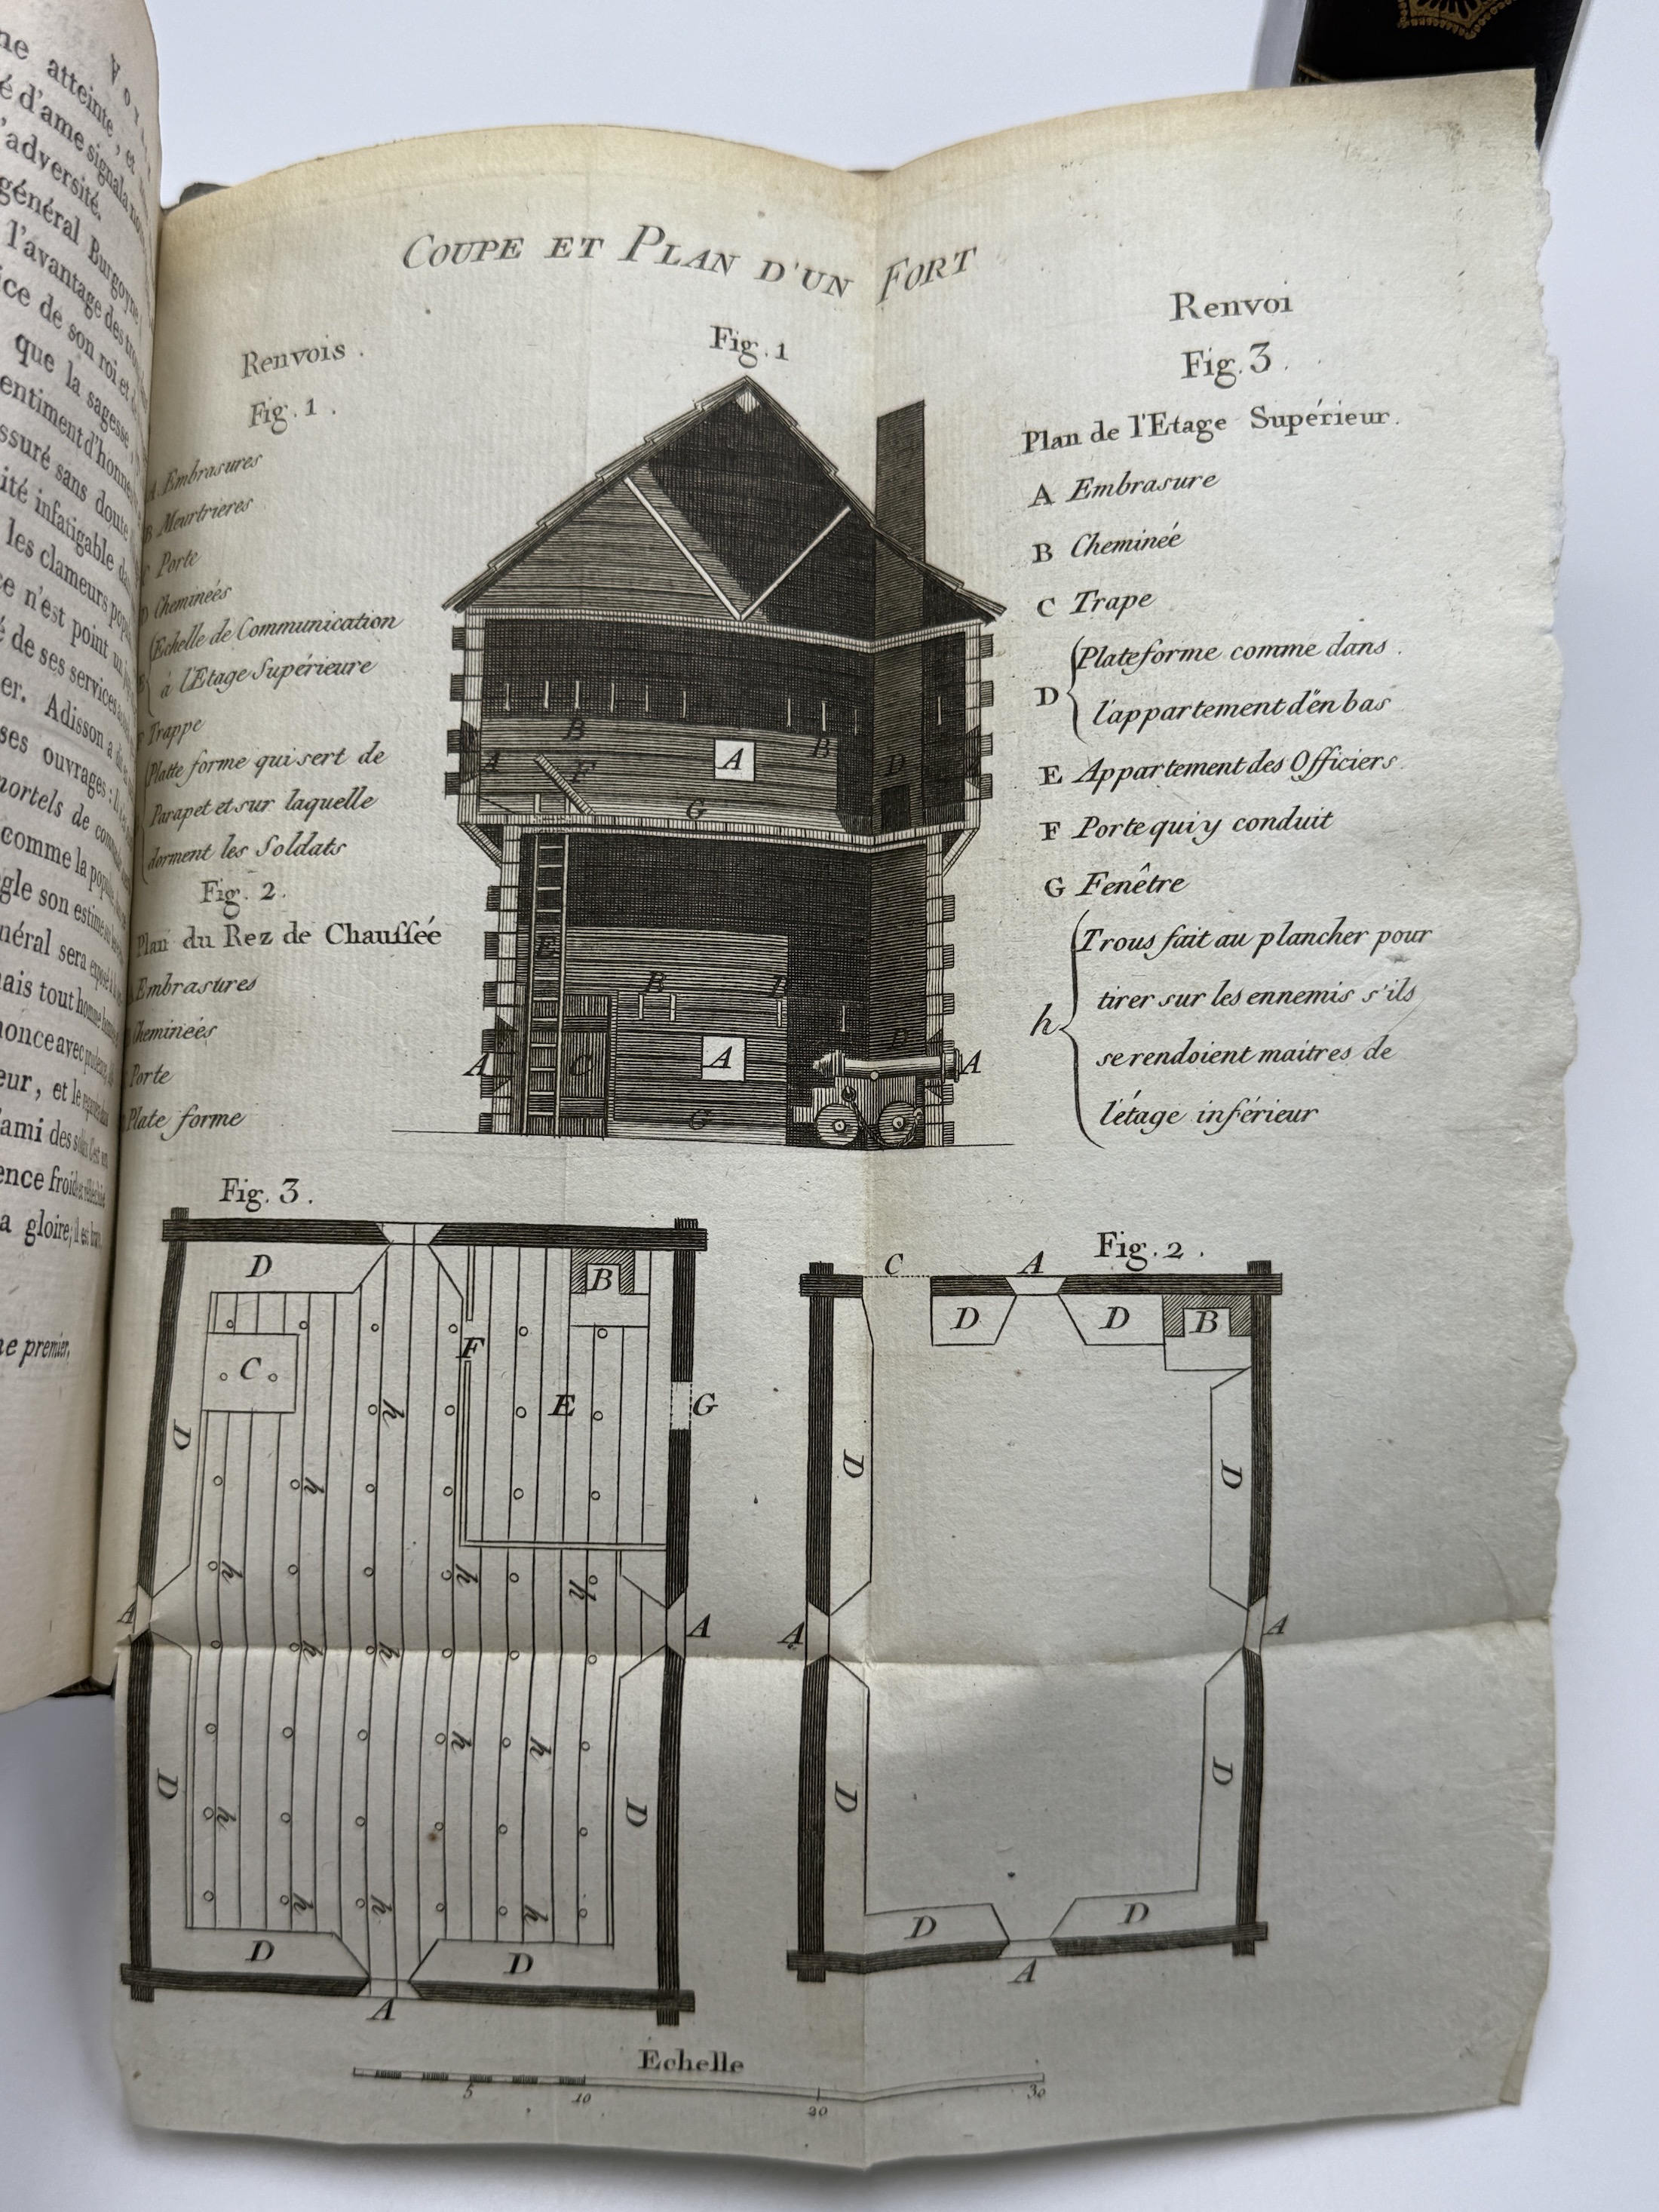 ne atteinte, et
é d'ame signala
l'adversité.
général Burgoyne
l'avantage des
ice de son roi et
que la sagesse,
entiment d'honneur
ssuré sans doute
ité infatigable
les clameurs
ce n'est point
é de ses services
er. Adisson a
ses ouvrages :
mortels de
comme la
gle son estime
néral sera exposé à
mais tout homme
nonce avec
eur, et le
ami des
ence froide
a gloire; il est
me premier.
COUPE ET PLAN D'UN FORT
Renvois.
Fig. 1.
A Embrasures
B Meurtrieres
C Porte
D Cheminées
E Echelle de Communication
à l'Etage Supérieure
F Trappe
Platte forme qui sert de
Parapet et sur laquelle
dorment les Soldats
Fig. 2.
Plan du Rez de Chaussée
Embrasures
Cheminées
Porte
Plate forme
Fig. 1
B
B
A
A
F
D
G
E
B
B
A
C
A
B
A
G
Renvoi
Fig. 3.
Plan de l'Etage Supérieur.
A Embrasure
B Cheminée
C Trape
D Plateforme comme dans
l'appartement d'en bas
E Appartement des Officiers
F Porte qui y conduit
G Fenêtre
h Trous fait au plancher pour
tirer sur les ennemis s'ils
se rendoient maitres de
l'étage inférieur
Fig. 3.
D
B
F
C
h
E
G
D
h
h
h
h
A
A
h
h
h
h
D
h
D
h
h
h
D
D
A
Fig. 2.
C
A
D
D
B
D
D
A
A
D
D
D
D
A
Echelle
5
10
20
30